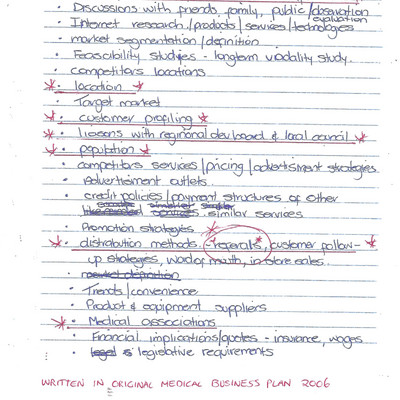 • Discussions with friends, family, public/observation
evaluation
• Internet research/products/services/technologies
• market segmentation/definition
• Feascibility studies - longterm viability study.
• competitors locations.
* • location *
• Target market
* • customer profiling *
* • liaesons with regional dev board & local council *
* • population *
• competitors services/pricing/advertisment strategies
• Advertisment outlets.
• credit policies/payment structures of other
services. similar services
• Promotion strategies *
* • distribution methods - referrals*, customer follow- *
up strategies, word of mouth, instore sales.
• market definition
• Trends/convenience
• Product & equipment suppliers
* • Medical associations
• Financial implications/quotes - insurance, wages
• legal s legislative requirements
WRITTEN IN ORIGINAL MEDICAL BUSINESS PLAN 2006